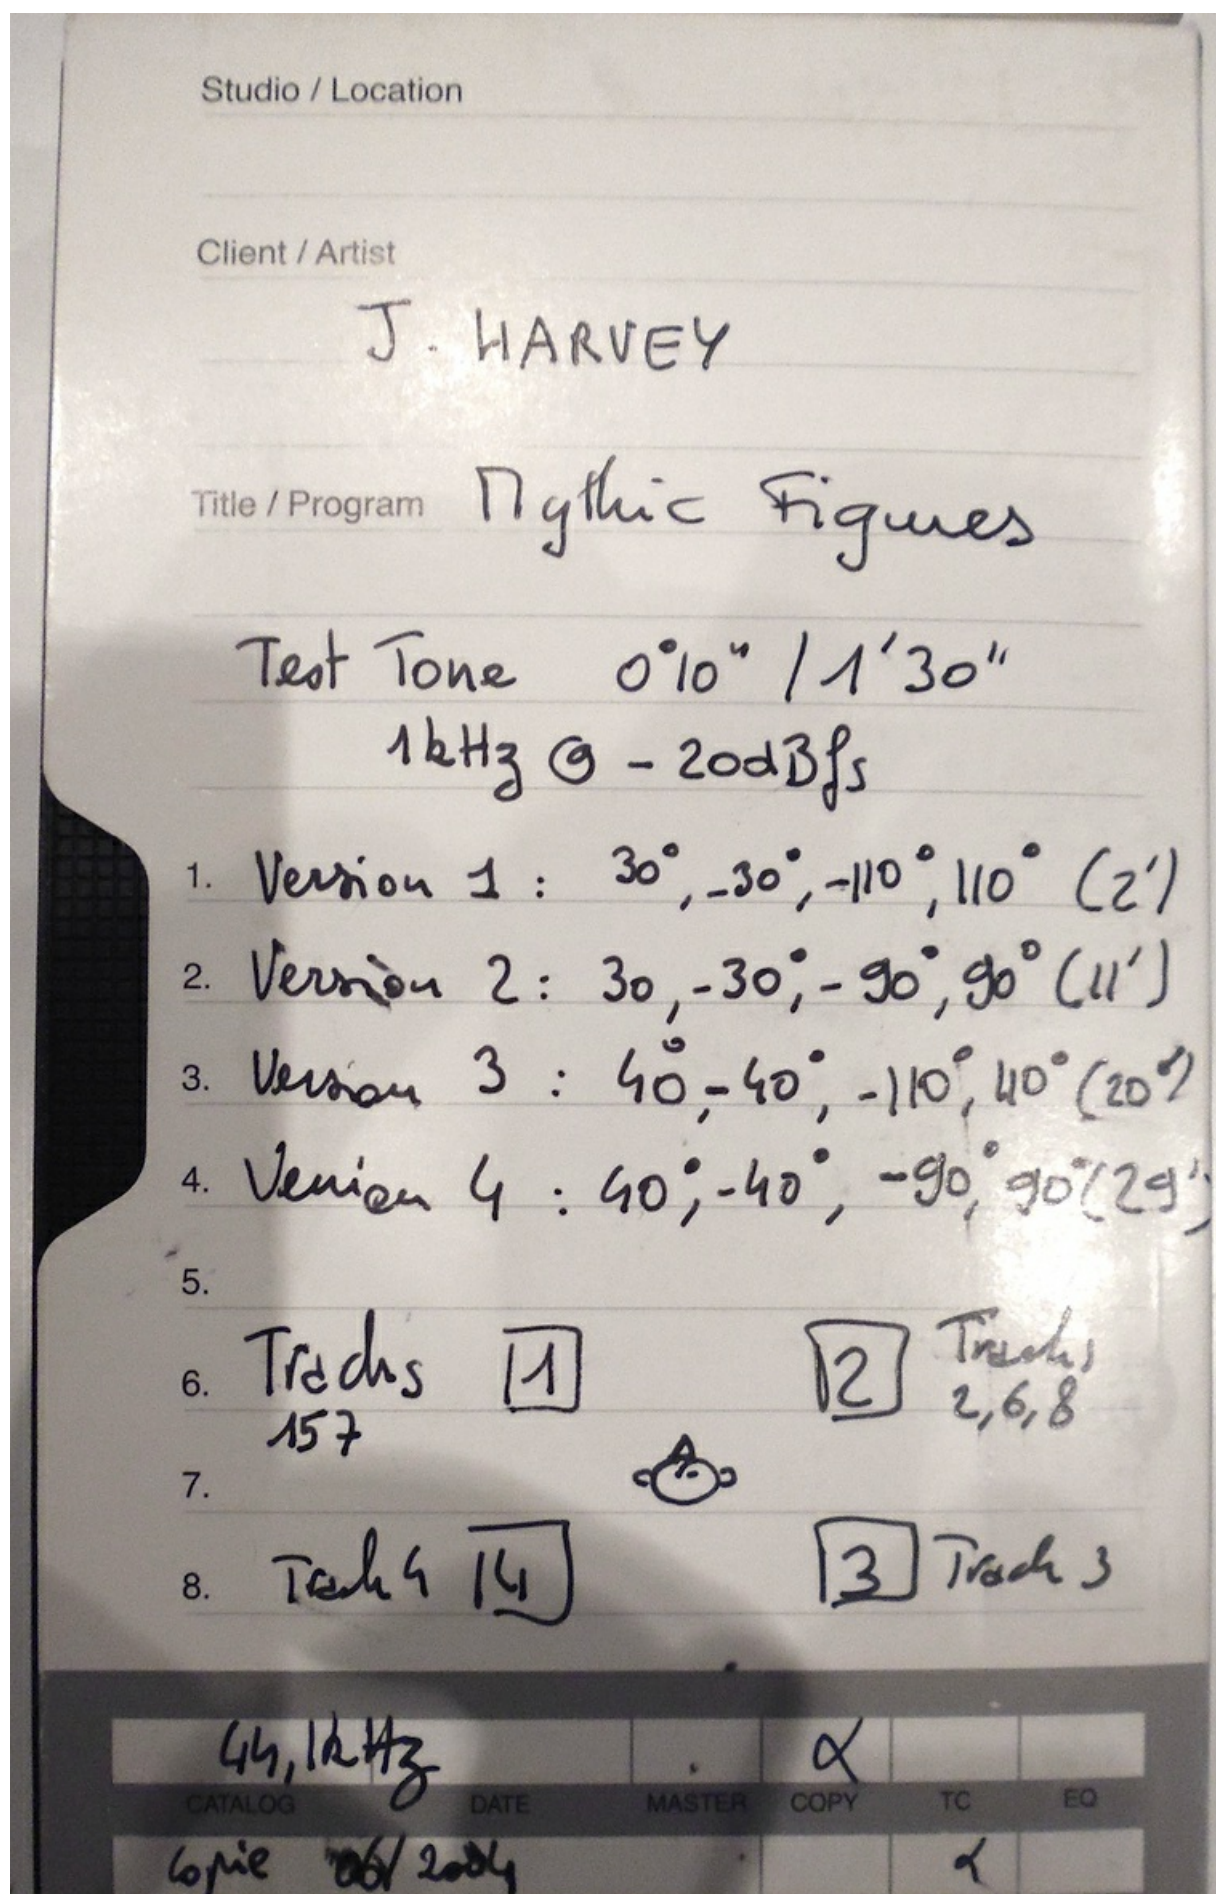 Studio / Location
Client / Artist
J. HARVEY
Title / Program Mythic Figures
Test Tone 0°10" / 1'30"
1kHz @ -20dBfs
1. Version 1 : 30°, -30°, -110°, 110° (2')
2. Version 2 : 30, -30°, -90°, 90° (11')
3. Version 3 : 40°, -40°, -110°, 110° (20')
4. Version 4 : 40°, -40°, -90°, 90° (29')
5.
6. Tracks 1 2 Tracks
157 2,6,8
7.
8. Track 4 4 3 Track 3
44,1kHz α
CATALOG DATE MASTER COPY TC EQ
copie 06/2004 α